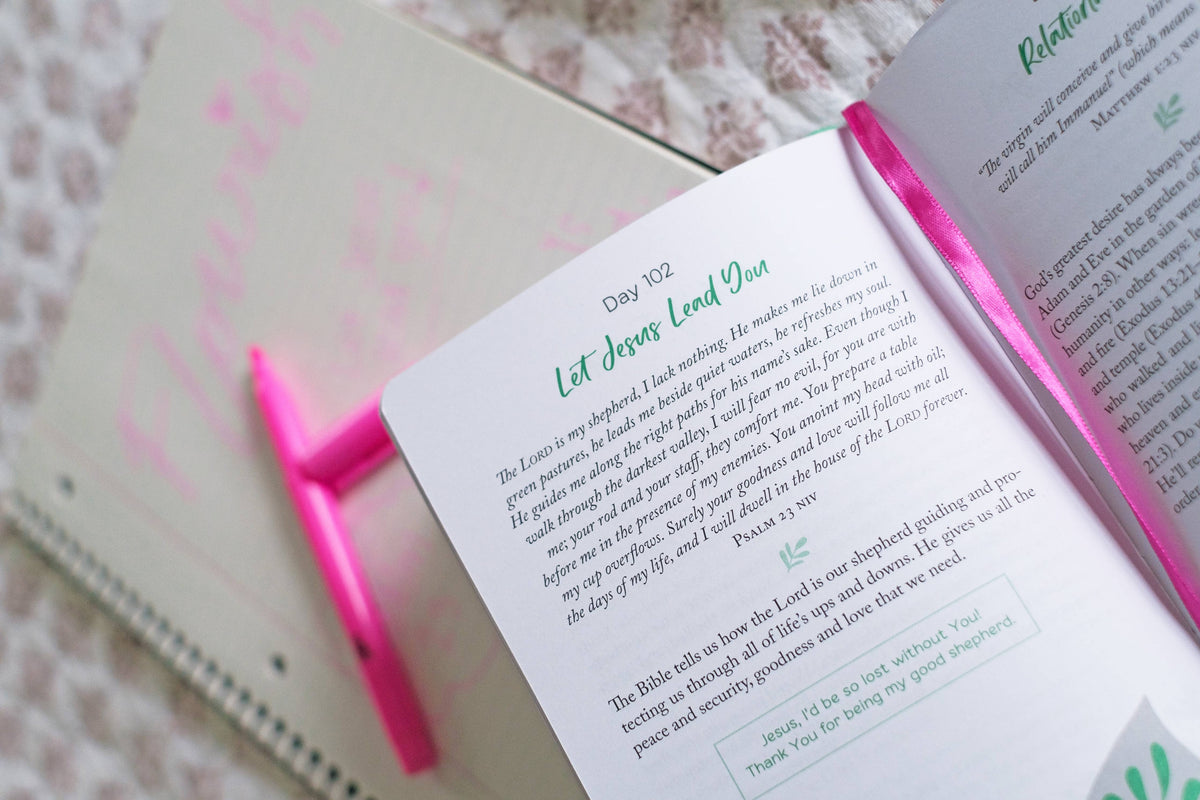 Flourish
Day 102
Let Jesus Lead You
The LORD is my shepherd, I lack nothing. He makes me lie down in
green pastures, he leads me beside quiet waters, he refreshes my soul.
He guides me along the right paths for his name's sake. Even though I
walk through the darkest valley, I will fear no evil, for you are with
me; your rod and your staff, they comfort me. You prepare a table
before me in the presence of my enemies. You anoint my head with oil;
my cup overflows. Surely your goodness and love will follow me all
the days of my life, and I will dwell in the house of the LORD forever.
PSALM 23 NIV
The Bible tells us how the Lord is our shepherd guiding and pro-
tecting us through all of life's ups and downs. He gives us all the
peace and security, goodness and love that we need.
Jesus, I'd be so lost without You!
Thank You for being my good shepherd.
"The virgin will conceive and give
will call him Immanuel" (which means
MATTHEW 1:23
God's greatest desire has always
Adam and Eve in the garden of
(Genesis 2:8). When sin
humanity in other ways:
and fire (Exodus 13:21
and temple (Exodus
who walked and
who lives inside
heaven and
21:3). Do
He'll